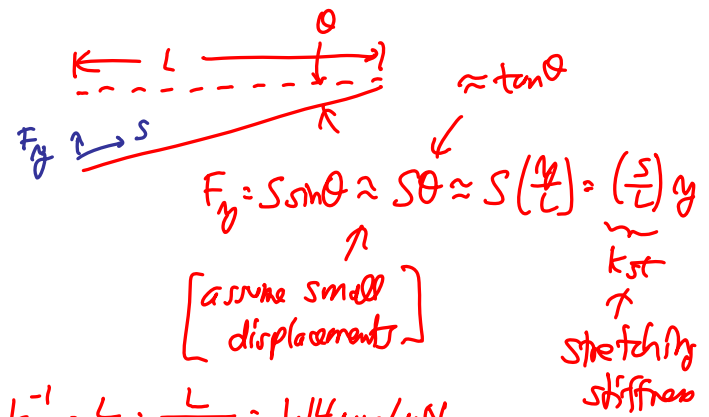 θ
L
≈ tanθ
F_y S
F_y = S sinθ ≈ Sθ ≈ S(y/L) = (S/L) y
k_st
[assume small
displacements]
stretching
stiffness